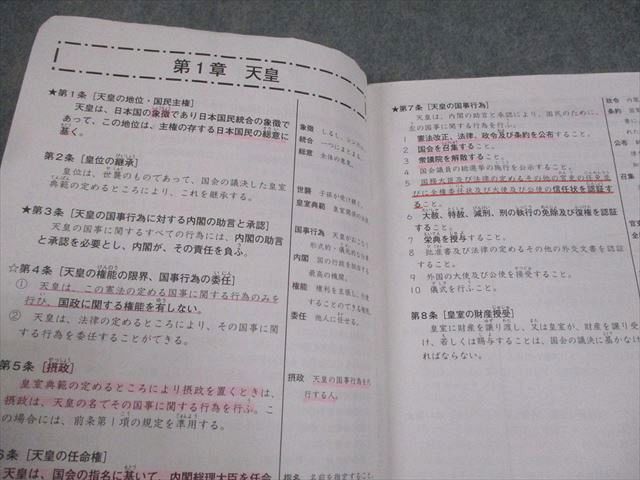 第1章 天皇
★第1条 [天皇の地位・国民主権]
天皇は、日本国の象徴であり日本国民統合の象徴で
あって、この地位は、主権の存する日本国民の総意に
基く。
第2条 [皇位の継承]
皇位は、世襲のものであって、国会の議決した皇室
典範の定めるところにより、これを継承する。
★第3条 [天皇の国事行為に対する内閣の助言と承認]
天皇の国事に関するすべての行為には、内閣の助言
と承認を必要とし、内閣が、その責任を負ふ。
☆第4条 [天皇の権能の限界、国事行為の委任]
① 天皇は、この憲法の定める国事に関する行為のみを
行ひ、国政に関する権能を有しない。
② 天皇は、法律の定めるところにより、その国事に関
する行為を委任することができる。
第5条 [摂政]
皇室典範の定めるところにより摂政を置くときは、
摂政は、天皇の名でその国事に関する行為を行ふ。こ
の場合には、前条第1項の規定を準用する。
6条 [天皇の任命権]
天皇は、国会の指名に基いて、内閣総理大臣を任命
象徴 しるし。シンボ
統合 一つにまとま
総意 全体の意見。
世襲 子孫が受け継ぐ
皇室典範 皇室関係の法
国事行為 天皇がおこ
形式的・儀礼的な
内閣 国の行政を担当す
最高の機関。
権能 権利を主張し、行使
することのできる能
委任 他人に任せる。
摂政 天皇の国事行為を代
行する人。
指名 名前を指定すること。
★第7条 [天皇の国事行為]
天皇は、内閣の助言と承認により、国民のために、
左の国事に関する行為を行ふ。
1 憲法改正、法律、政令及び条約を公布すること。
2 国会を召集すること。
3 衆議院を解散すること。
4 国会議員の総選挙の施行を公示すること。
5 国務大臣及び法律の定めるその他の官吏の任免並
びに全権委任状及び大使及び公使の信任状を認証す
ること。
6 大赦、特赦、減刑、刑の執行の免除及び復権を認証
すること。
7 栄典を授与すること。
8 批准書及び法律の定めるその他の外交文書を認証
すること。
9 外国の大使及び公使を接受すること。
10 儀式を行ふこと。
第8条 [皇室の財産授受]
皇室に財産を譲り渡し、又は皇室が、財産を譲り受
け、若しくは賜与することは、国会の議決に基かなけ
ればならない。
政令
条約
公布